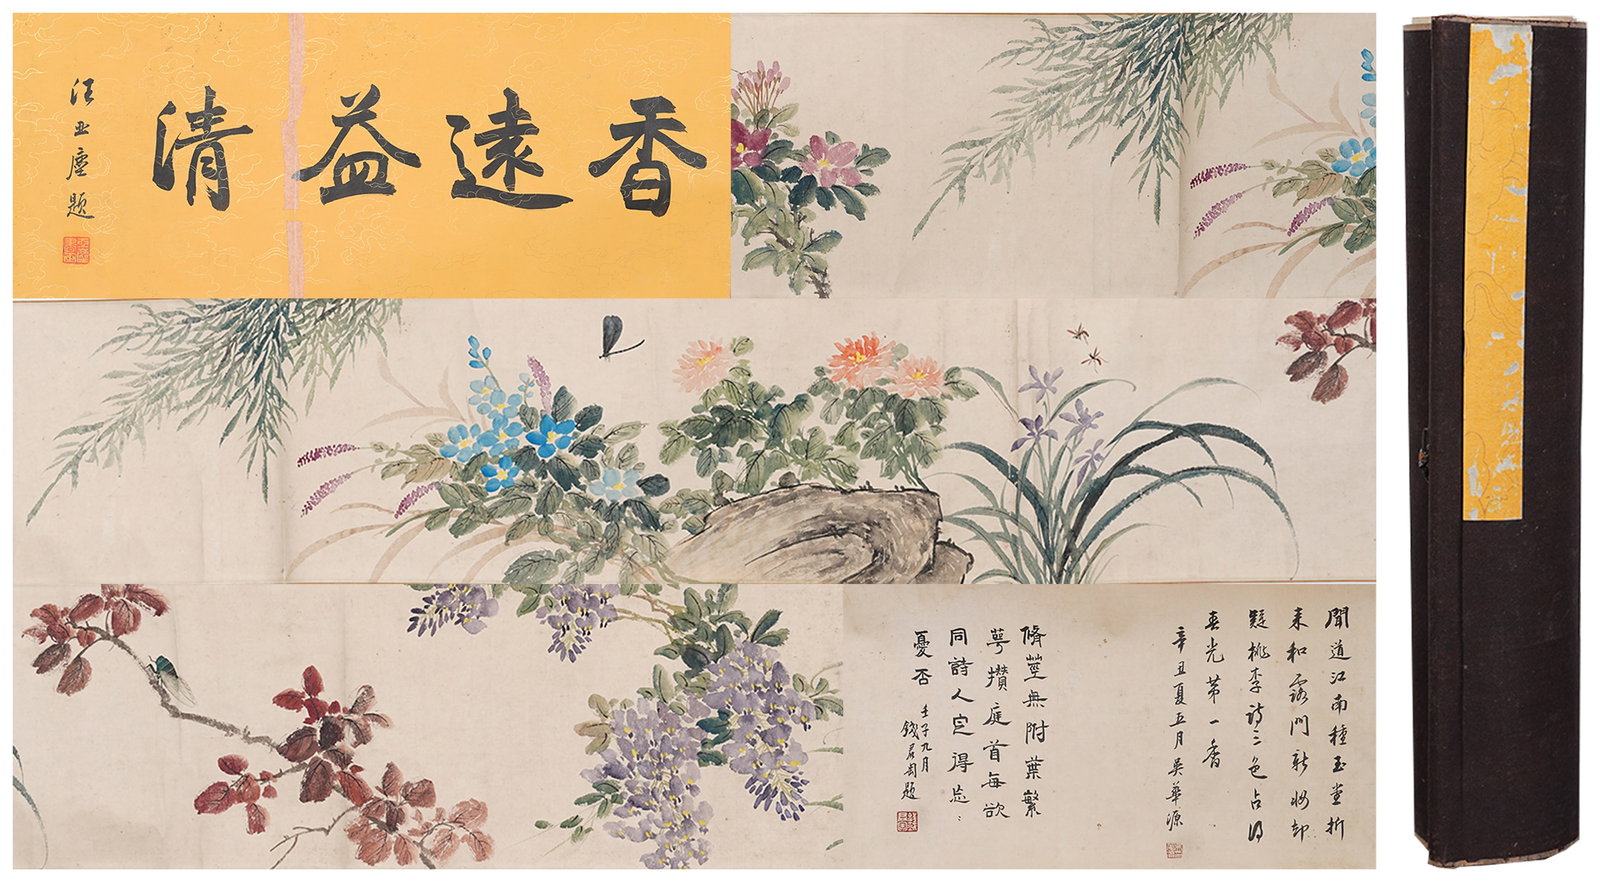 香遠益清
汪亚塵題
聞道江南種玉堂折
来和露鬥新妝却
疑桃李誇三色占得
春光第一香
辛丑夏五月吳華源
脩莖無附葉繁
萼攢庭首每欲
同詩人定得忘
憂否
壬子九月
錢君匋題